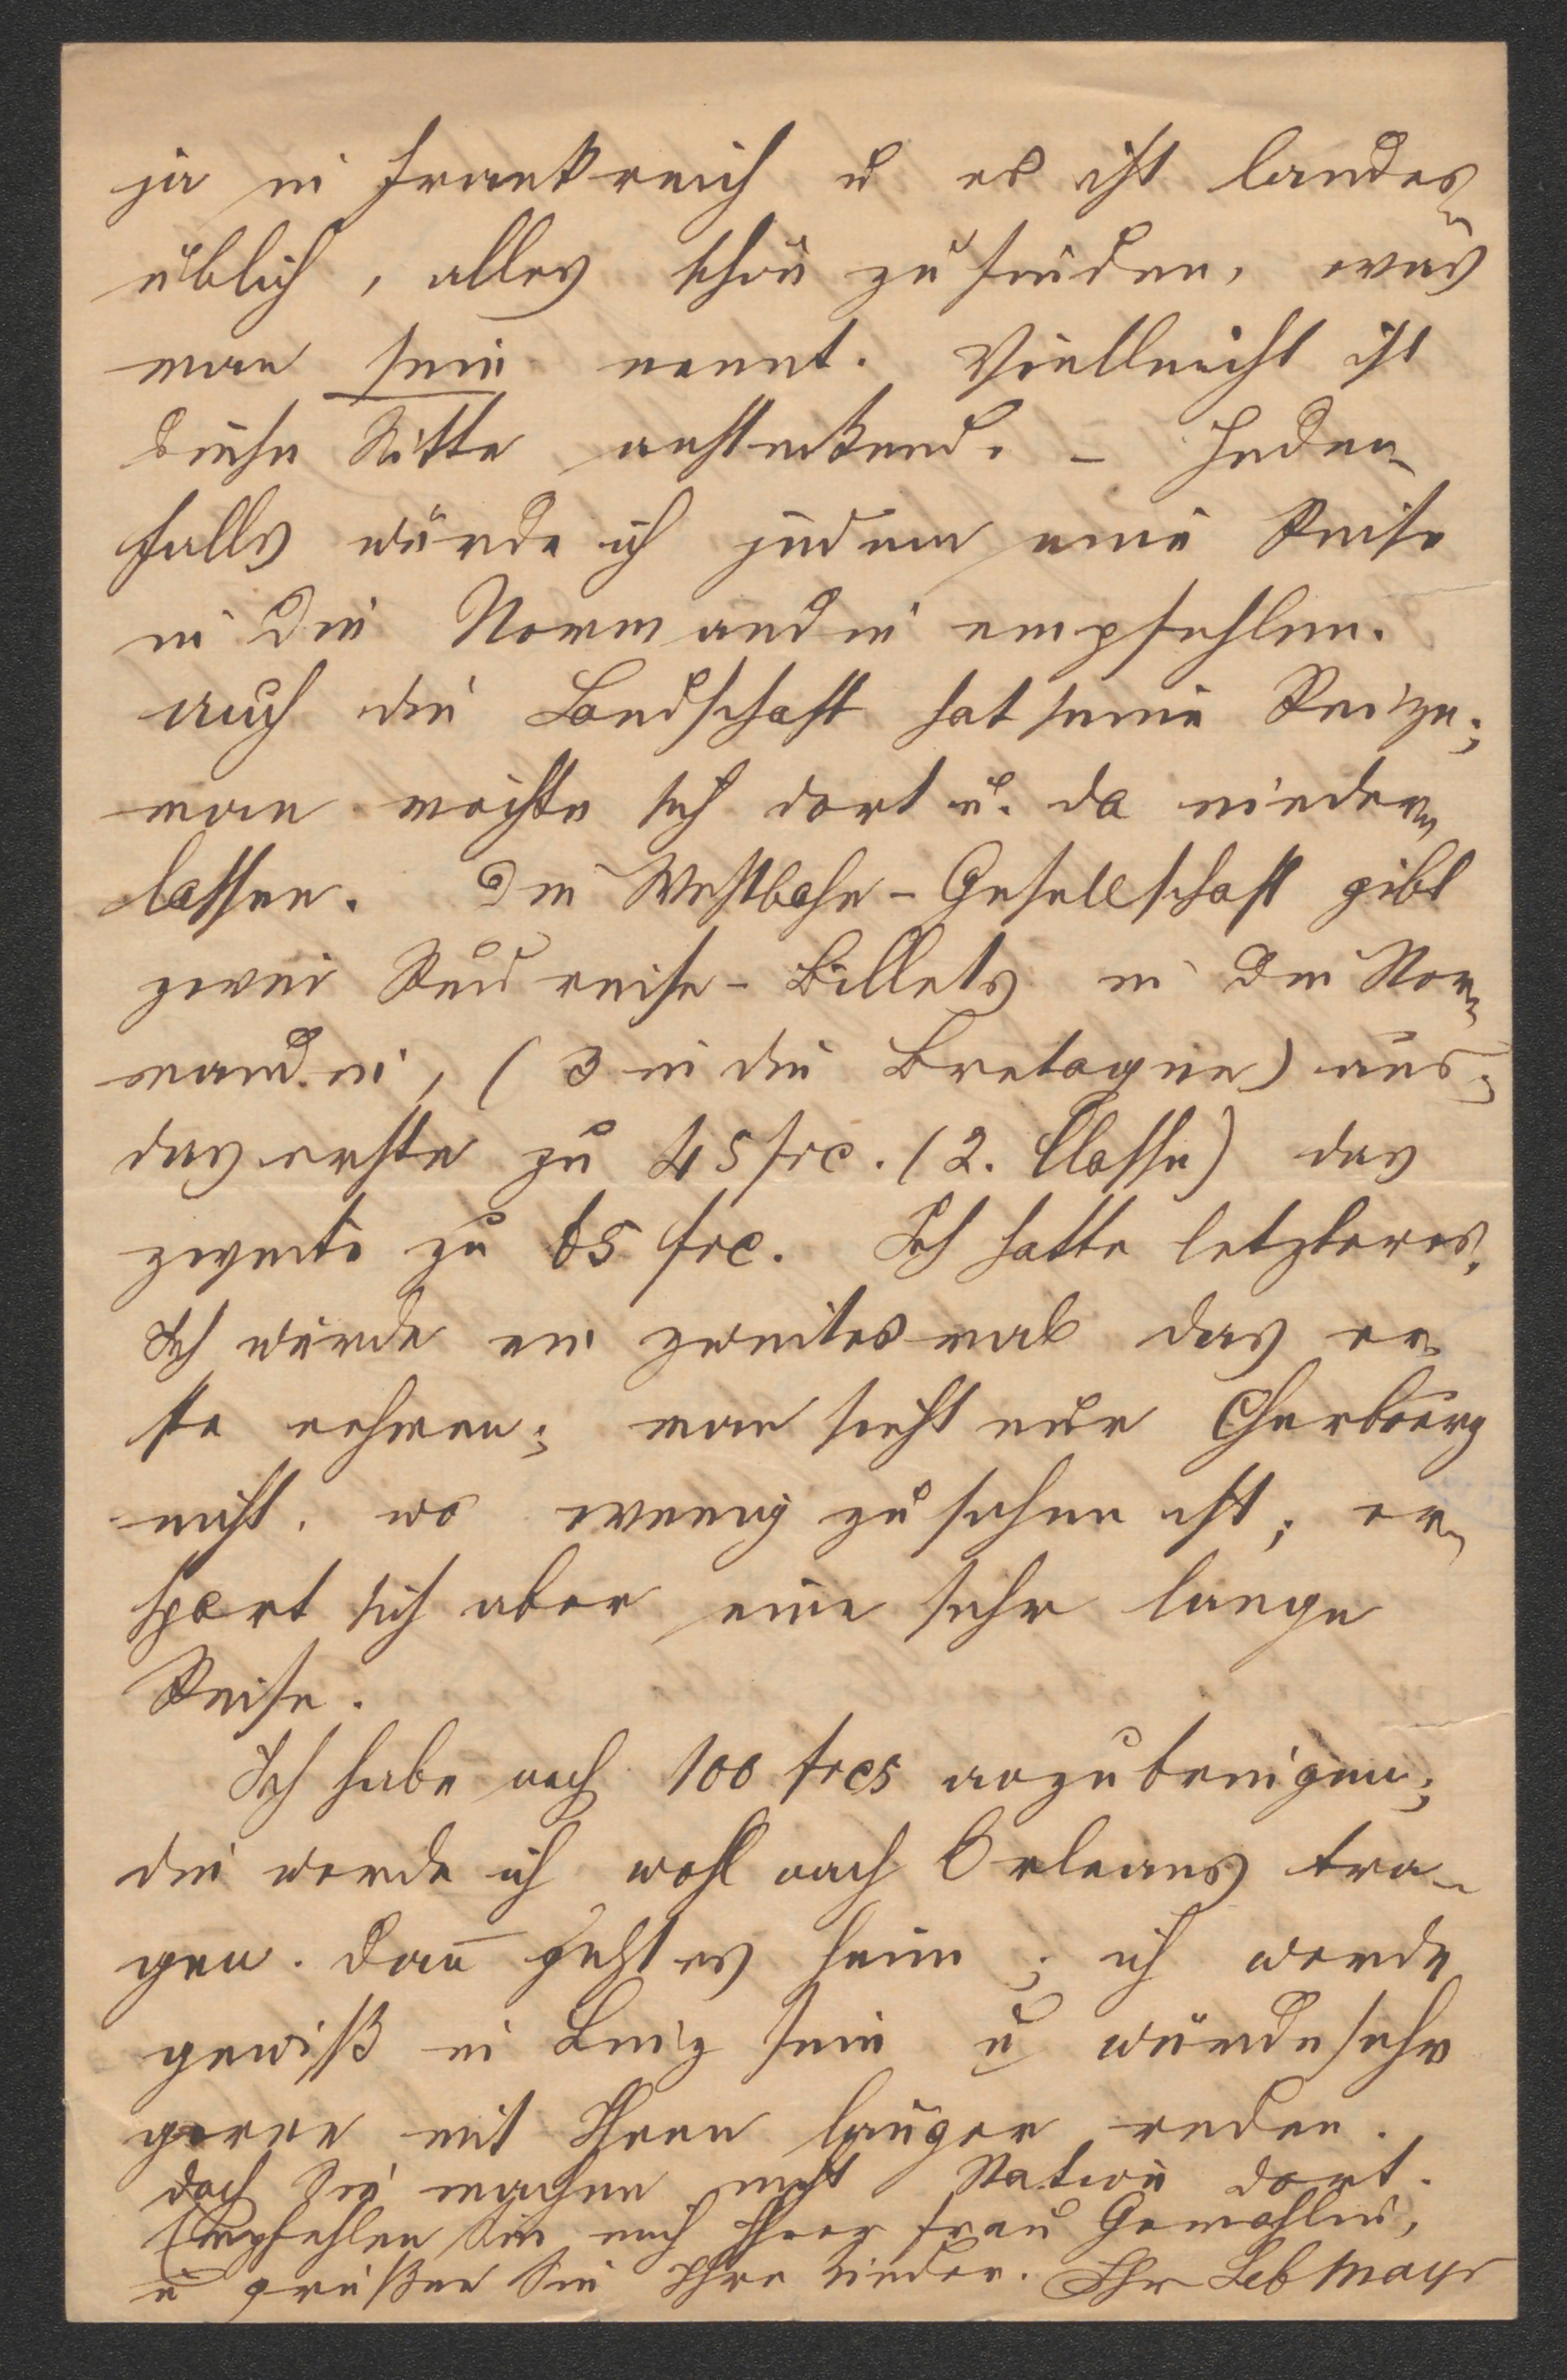 ja in Frankreich u es ist landes-
üblich, alles schön zu finden, was
man fein nennt. Vielleicht ist
diese Sitte ansteckend. – Jeden-
falls würde ich jedem eine Reise
in die Normandie empfehlen.
auch die Landschaft hat seine Reize;
man möchte sich dort u. da nieder-
lassen. Die Westbahn-Gesellschaft gibt
zwei Rundreise-Billets in die Nor-
mandie, (3 in die Bretagne) aus;
das erste zu 45 frc. (2. Classe) das
zweite zu 65 frc. Ich hatte letzteres.
Ich würde ein zweitesmal das er-
ste nehmen; man sieht nur Cherbourg
nicht, wo wenig zu sehen ist; er-
spart sich aber eine sehr lange
Reise.
Ich habe noch 100 frcs anzubringen;
die werde ich wohl nach Orleans tra-
gen. Dan̄ geht es heim; ich werde
gewiß in Linz sein u würde sehr
gerne mit Ihnen länger reden.
doch Sie machen nicht Station dort.
Empfehlen Sie mich Ihrer Frau Gemahlin,
u grüßen Sie Ihre Kinder. Ihr Seb Mayr